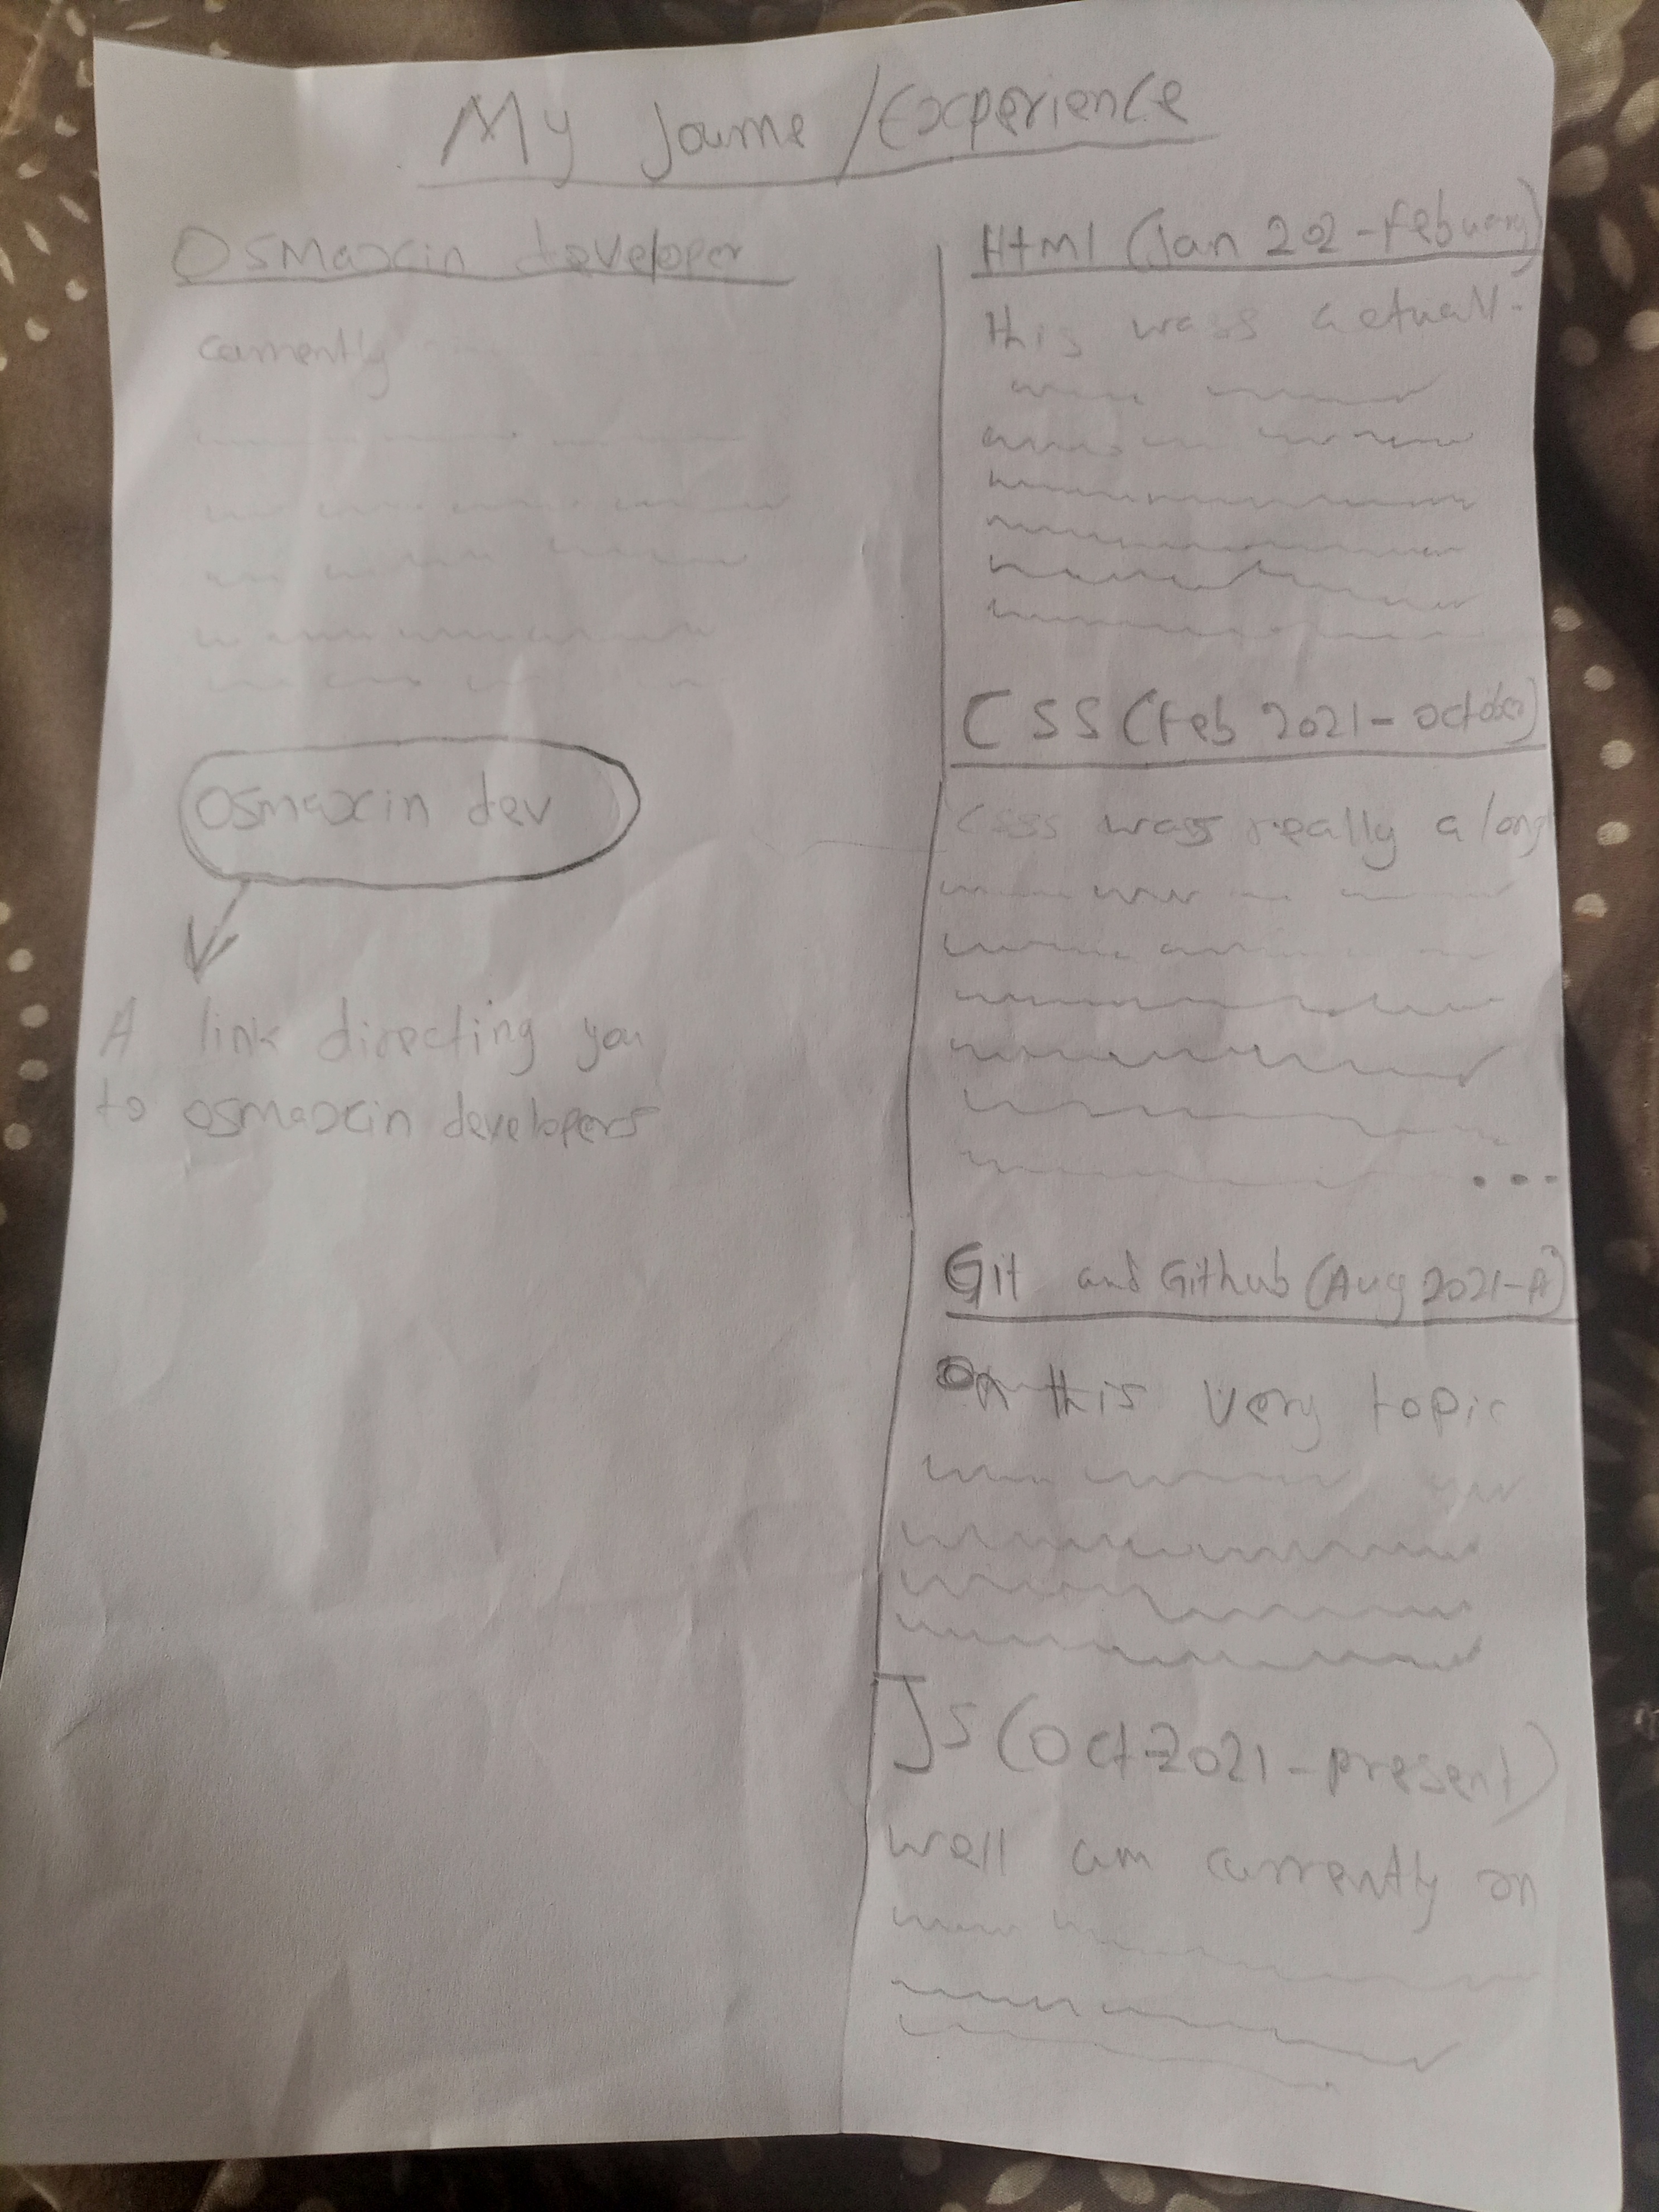 My Journe/Experience
Osmaxin developer
currently
osmaxin dev
A link directing you
to osmaxin developers
Html (Jan 202-febuary)
this wass actuall-
CSS (Feb 2021-october)
csss wass really a long
...
Git and Github (Aug 2021-A)
On this very topic
JS (Oct-2021-present)
well am currently on